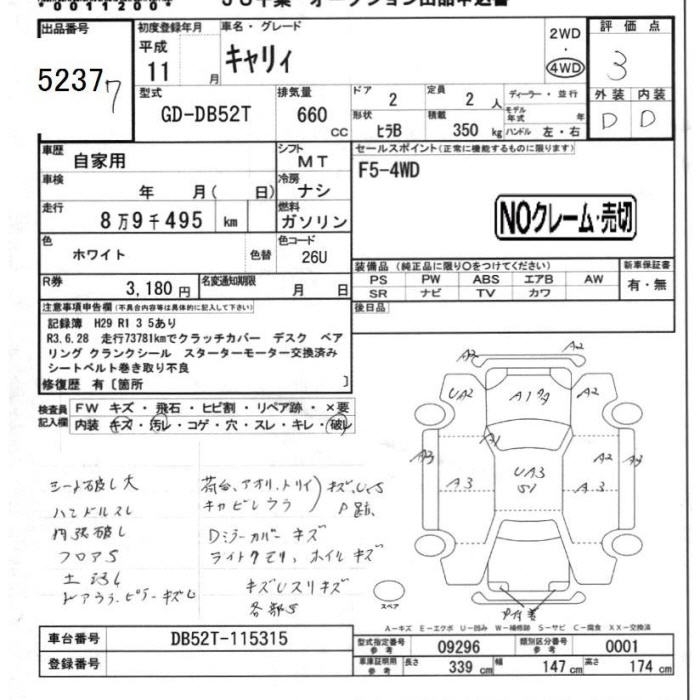 0011200
出品番号
52377
初度登録年月
平成
11 月
車名・グレード
キャリィ
2WD
・
4WD
評価点
3
型式
GD-DB52T
排気量
660
CC
ドア
2
定員
2 人
ディーラー・並行
形状
ヒラB
積載
350 kg
モデル年式 年
ハンドル 左・右
外装 内装
D D
車歴
自家用
シフト
MT
セールスポイント(正常に機能するものに限ります)
F5-4WD
NOクレーム・売切
車検
年 月( 日)
冷房
ナシ
走行
8万9千495 km
燃料
ガソリン
色
ホワイト
色替
色コード
26U
装備品(純正品に限り○をつけてください)
PS PW ABS エアB AW
SR ナビ TV カワ
新車保証書
有・無
R券
3,180円
名変通知期限
月 日
後日品
注意事項申告欄(不具合内容等は具体的に記入して下さい)
記録簿 H29 R1 3 5あり
R3.6.28 走行73781kmでクラッチカバー デスク ベア
リング クランクシール スターターモーター交換済み
シートベルト巻き取り不良
修復歴 有〔箇所 〕
検査員記入欄
FW キズ・飛石・ヒビ割・リペア跡・×要
内装 キズ・汚レ・コゲ・穴・スレ・キレ・破レ
シート破レ大
ハンドルスレ
内張破レ
フロアS
ドアウラ、ピラーキズU
荷台、アオリ、トリイ)キズ、U、S
キャビンウラ P跡
Dミラーカバー キズ
ライトクモリ、ホイルキズ
キズUスリキズ
各部S
A2 A2
UA2 A1 A2
A1
A3 A2 A3
A3 UA3 A3
S1
スペア
A-キズ E-エクボ U-凹み W-補修跡 S-サビ C-腐食 XX-交換済
車台番号
DB52T-115315
登録番号
型式指定番号
参考
09296
類別区分番号
参考
0001
車庫証明用
参考
長さ
339 cm
幅
147 cm
高さ
174 cm